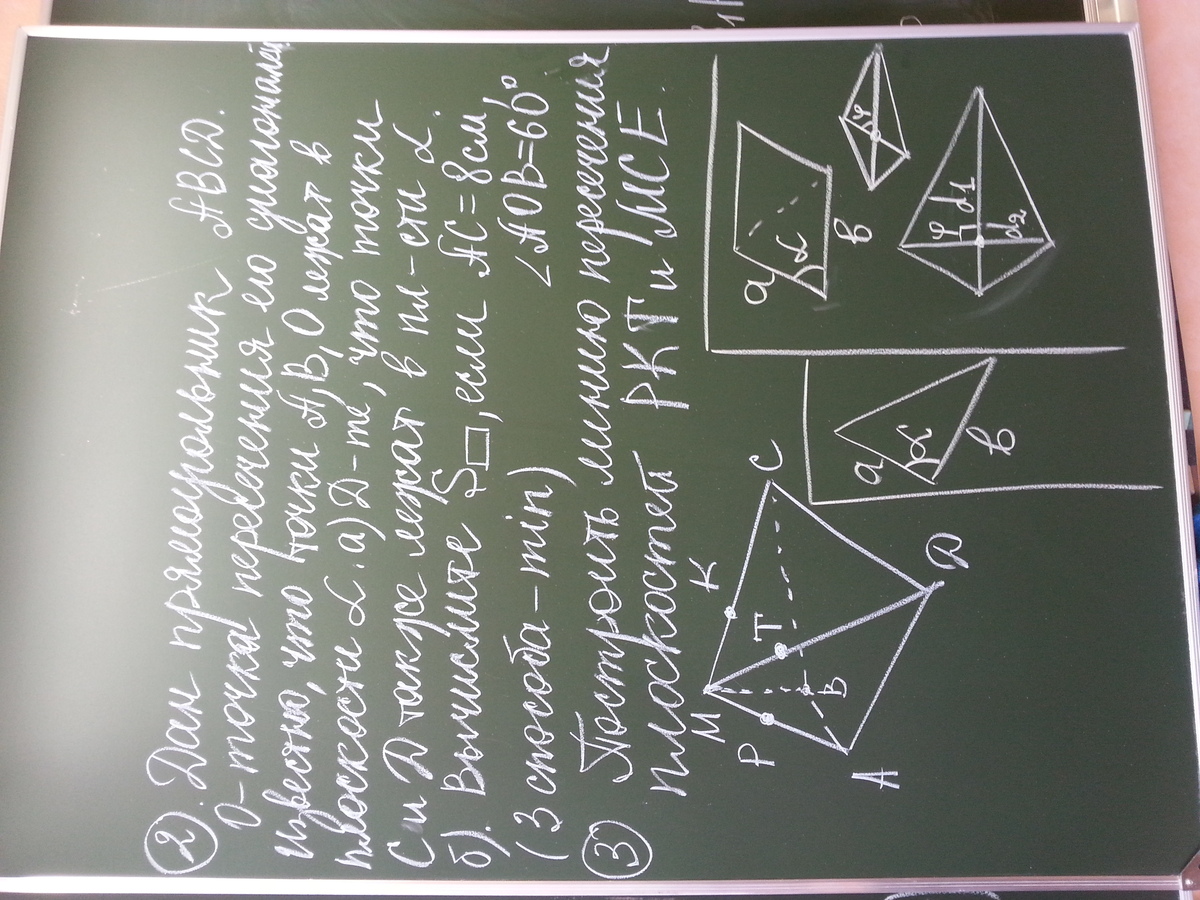 2. Дан прямоугольник ABCD.
O-точка пересечения его диагоналей
Известно, что точки A, B, O лежат в
плоскости α. а) Д-те, что точки
C и D также лежат в пл-сти α.
б). Вычислите S▭, если AC = 8см,
∠AOB=60°
(3 способа-min)
3 Построить линию пересечения
плоскостей PKT и MCE.
M K C
P T
B
A D
a α в
a α в
φ
φ d1
d2